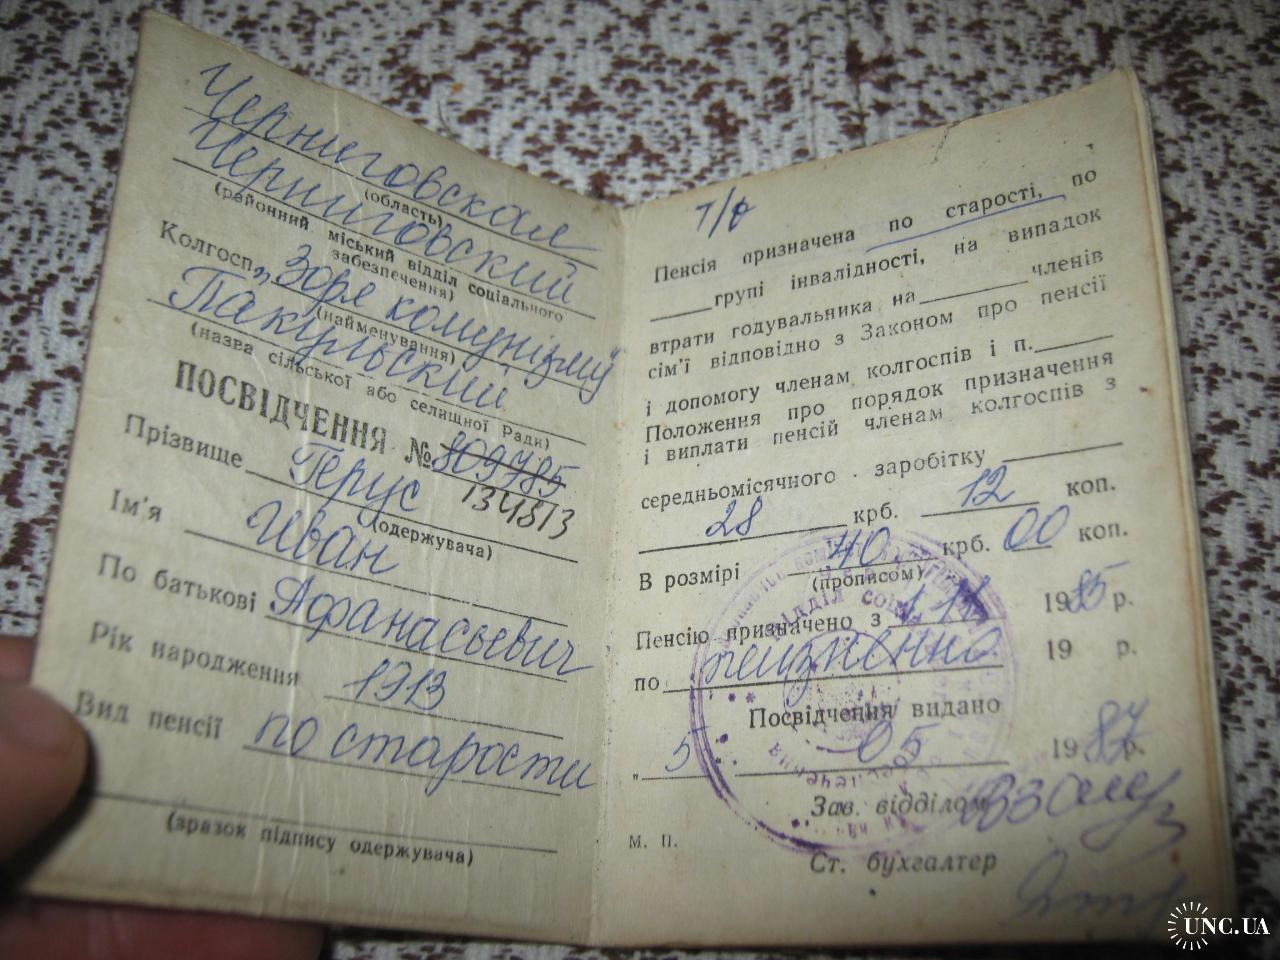 Черниговская
(область)
Черниговский
(районний міський відділ соціального
забезпечення)
Колгосп „Зоря комунізму
(найменування)
Пакульский
(назва сільської або селищної Ради)
ПОСВІДЧЕННЯ № 809785
134813
Прізвище Герус
(одержувача)
Ім'я Иван
По батькові Афанасьевич
Рік народження 1913
Вид пенсії по старости
(зразок підпису одержувача)
Т/о
Пенсія призначена по старості, по
групі інвалідності, на випадок
втрати годувальника на членів
сім'ї відповідно з Законом про пенсії
і допомогу членам колгоспів і п.
Положення про порядок призначення
і виплати пенсій членам колгоспів з
середньомісячного заробітку
28 крб. 12 коп.
В розмірі 40 крб. 00 коп.
(прописом)
Пенсію призначено з 1.11 1985 р.
по пожизненно 19 р.
Посвідчення видано
„ 5 " 05 1987 р.
Зав. відділом
М. П.
Ст. бухгалтер
UNC.UA